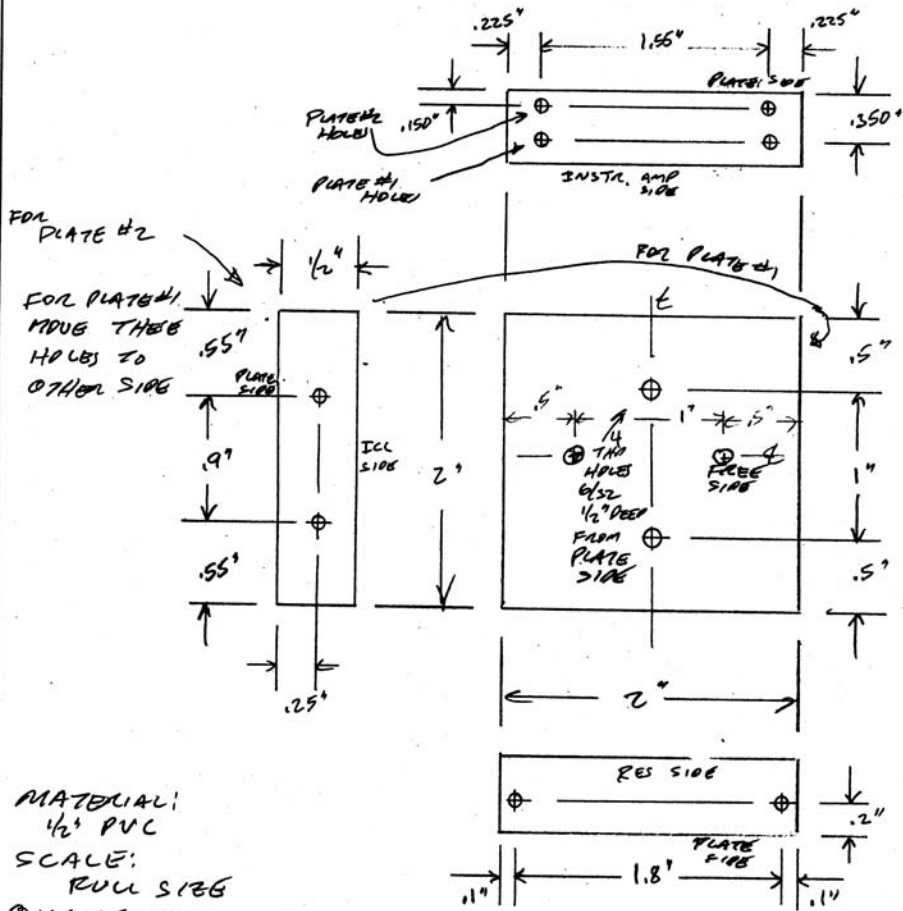 .225"
1.55"
.225"
PLATE SIDE
PLATE #2
HOLES
.150"
.350"
PLATE #1
HOLES
INSTR. AMP
SIDE
FOR
PLATE #2
1/2"
FOR PLATE #1
FOR PLATE #1
MOVE THESE
HOLES TO
OTHER SIDE
.55"
PLATE
SIDE
.9"
ICL
SIDE
2"
.55"
.25"
.5"
.5"
1"
.5"
4
TAP
HOLES
6/32
1/2" DEEP
FROM
PLATE
SIDE
FREE
SIDE
1"
.5"
2"
RES SIDE
.2"
PLATE
SIDE
.1"
1.8"
.1"
MATERIAL:
1/2" PVC
SCALE:
FULL SIZE